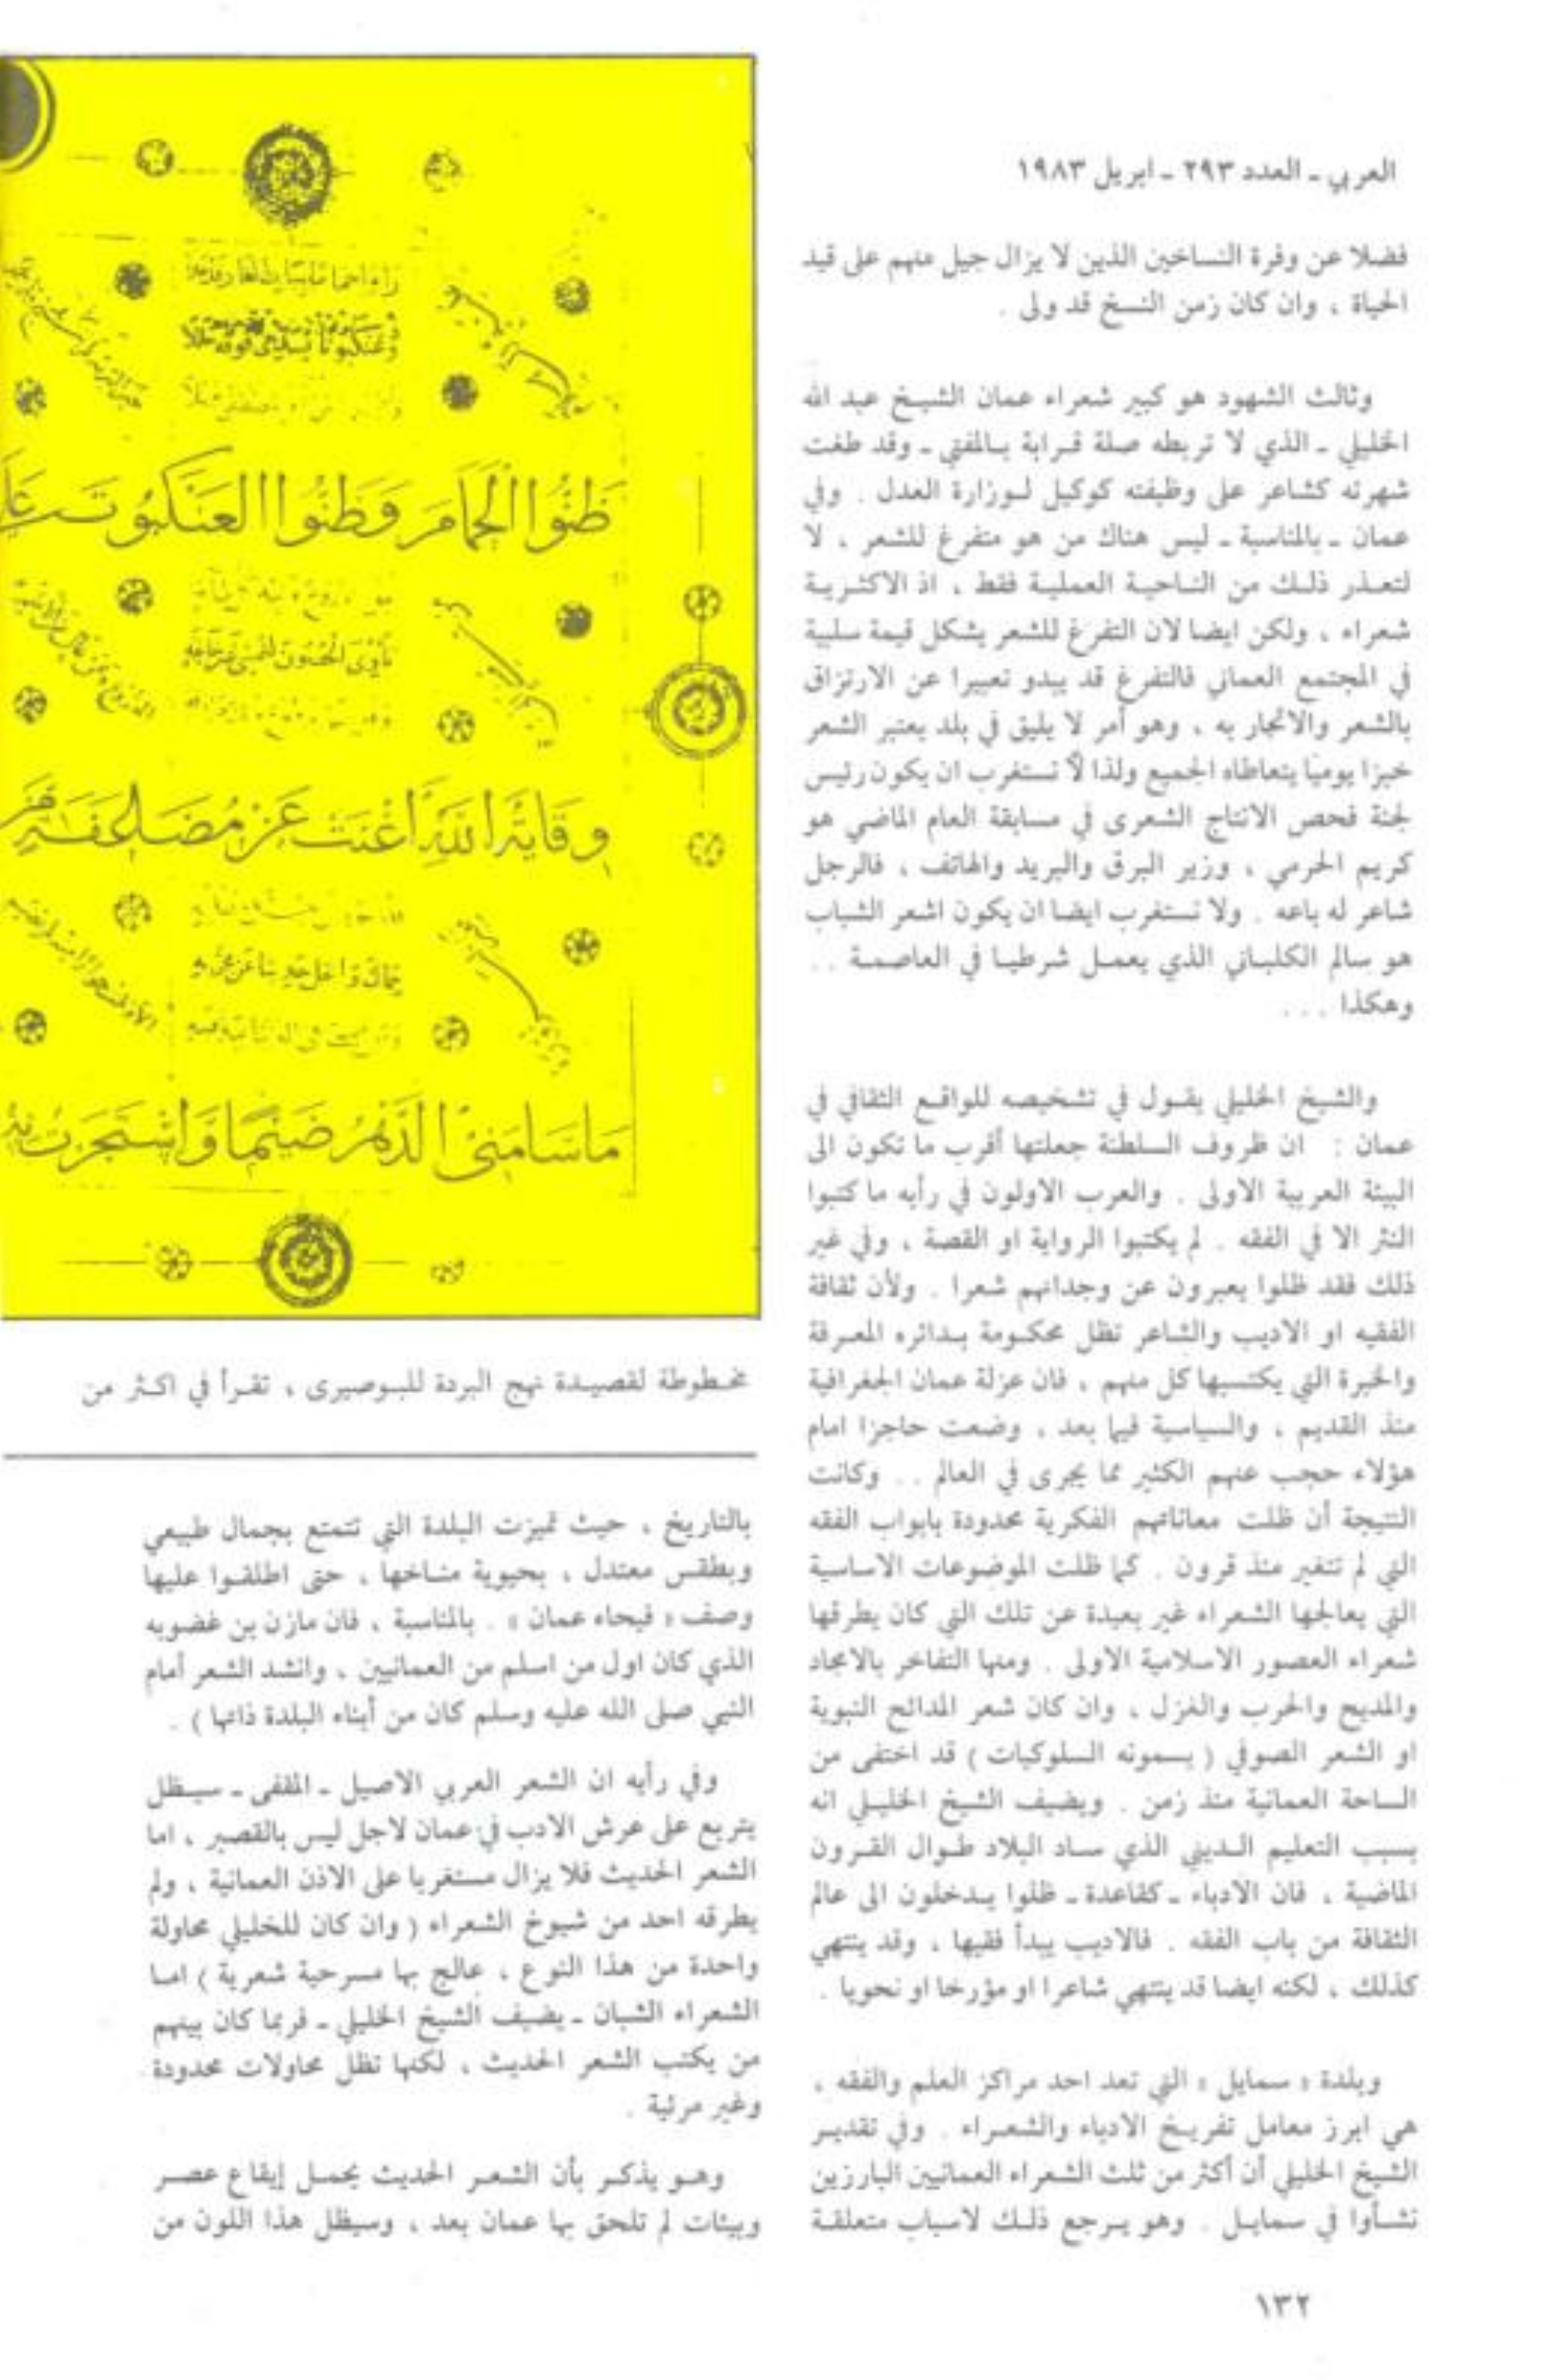 العربي ـ العدد ٢٩٣ ـ ابريل ١٩٨٣
فضلا عن وفرة النساخين الذين لا يزال جيل منهم على قيد
الحياة ، وان كان زمن النسخ قد ولى .
وثالث الشهود هو كبير شعراء عمان الشيخ عبد الله
الخليلي ـ الذي لا تربطه صلة قرابة بالمفتي ـ وقد طغت
شهرته كشاعر على وظيفته كوكيل لوزارة العدل . وفي
عمان ـ بالمناسبة ـ ليس هناك من هو متفرغ للشعر ، لا
لتعذر ذلك من الناحية العملية فقط ، اذ الاكثرية
شعراء ، ولكن ايضا لان التفرغ للشعر يشكل قيمة سلبية
في المجتمع العماني فالتفرغ قد يبدو تعبيرا عن الارتزاق
بالشعر والاتجار به ، وهو أمر لا يليق في بلد يعتبر الشعر
خبزا يوميا يتعاطاه الجميع ولذا لا تستغرب ان يكون رئيس
لجنة فحص الانتاج الشعرى في مسابقة العام الماضي هو
كريم الحرمي ، وزير البرق والبريد والهاتف ، فالرجل
شاعر له باعه . ولا تستغرب ايضا ان يكون اشعر الشباب
هو سالم الكلباني الذي يعمل شرطيا في العاصمة . .
وهكذا . . .
والشيخ الخليلي يقول في تشخيصه للواقع الثقافي في
عمان : ان ظروف السلطنة جعلتها أقرب ما تكون الى
البيئة العربية الاولى . والعرب الاولون في رأيه ما كتبوا
النثر الا في الفقه . لم يكتبوا الرواية او القصة ، وفي غير
ذلك فقد ظلوا يعبرون عن وجدانهم شعرا . ولأن ثقافة
الفقيه او الاديب والشاعر تظل محكومة بدائره المعرفة
والخبرة التي يكتسبها كل منهم ، فان عزلة عمان الجغرافية
منذ القديم ، والسياسية فيما بعد ، وضعت حاجزا امام
هؤلاء حجب عنهم الكثير مما يجرى في العالم . . وكانت
النتيجة أن ظلت معاناتهم الفكرية محدودة بابواب الفقه
التي لم تتغير منذ قرون . كما ظلت الموضوعات الاساسية
التي يعالجها الشعراء غير بعيدة عن تلك التي كان يطرقها
شعراء العصور الاسلامية الاولى . ومنها التفاخر بالامجاد
والمديح والحرب والغزل ، وان كان شعر المدائح النبوية
او الشعر الصوفي ( يسمونه السلوكيات ) قد اختفى من
الساحة العمانية منذ زمن . ويضيف الشيخ الخليلي انه
بسبب التعليم الديني الذي ساد البلاد طوال القرون
الماضية ، فان الادباء ـ كقاعدة ـ ظلوا يدخلون الى عالم
الثقافة من باب الفقه . فالاديب يبدأ فقيها ، وقد ينتهي
كذلك ، لكنه ايضا قد ينتهي شاعرا او مؤرخا او نحويا .
وبلدة « سمايل » التي تعد احد مراكز العلم والفقه ،
هي ابرز معامل تفريخ الادباء والشعراء . وفي تقدير
الشيخ الخليلي أن أكثر من ثلث الشعراء العمانيين البارزين
نشأوا في سمايل . وهو يرجع ذلك لاسباب متعلقة
١٣٢
ظَنُّوا الْحَمَامَ وَظَنُّوا الْعَنْكَبُوتَ
وِقَايَةُ اللهِ أَغْنَتْ عَنْ مُضَاعَفَةٍ
مَا سَامَنِي الدَّهْرُ ضَيْمًا وَاسْتَجَرْتُ
مخطوطة لقصيدة نهج البردة للبوصيرى ، تقرأ في اكثر من
بالتاريخ ، حيث تميزت البلدة التي تتمتع بجمال طبيعي
وبطقس معتدل ، بحيوية مناخها ، حتى اطلقوا عليها
وصف « فيحاء عمان » . بالمناسبة ، فان مازن بن غضوبه
الذي كان اول من اسلم من العمانيين ، وانشد الشعر أمام
النبي صلى الله عليه وسلم كان من أبناء البلدة ذاتها ) .
وفي رأيه ان الشعر العربي الاصيل ـ المقفى ـ سيظل
يتربع على عرش الادب في عمان لاجل ليس بالقصير ، اما
الشعر الحديث فلا يزال مستغربا على الاذن العمانية ، ولم
يطرقه احد من شيوخ الشعراء ( وان كان للخليلي محاولة
واحدة من هذا النوع ، عالج بها مسرحية شعرية ) اما
الشعراء الشبان ـ يضيف الشيخ الخليلي ـ فربما كان بينهم
من يكتب الشعر الحديث ، لكنها تظل محاولات محدودة
وغير مرئية .
وهو يذكر بأن الشعر الحديث يحمل إيقاع عصر
وبيئات لم تلحق بها عمان بعد ، وسيظل هذا اللون من